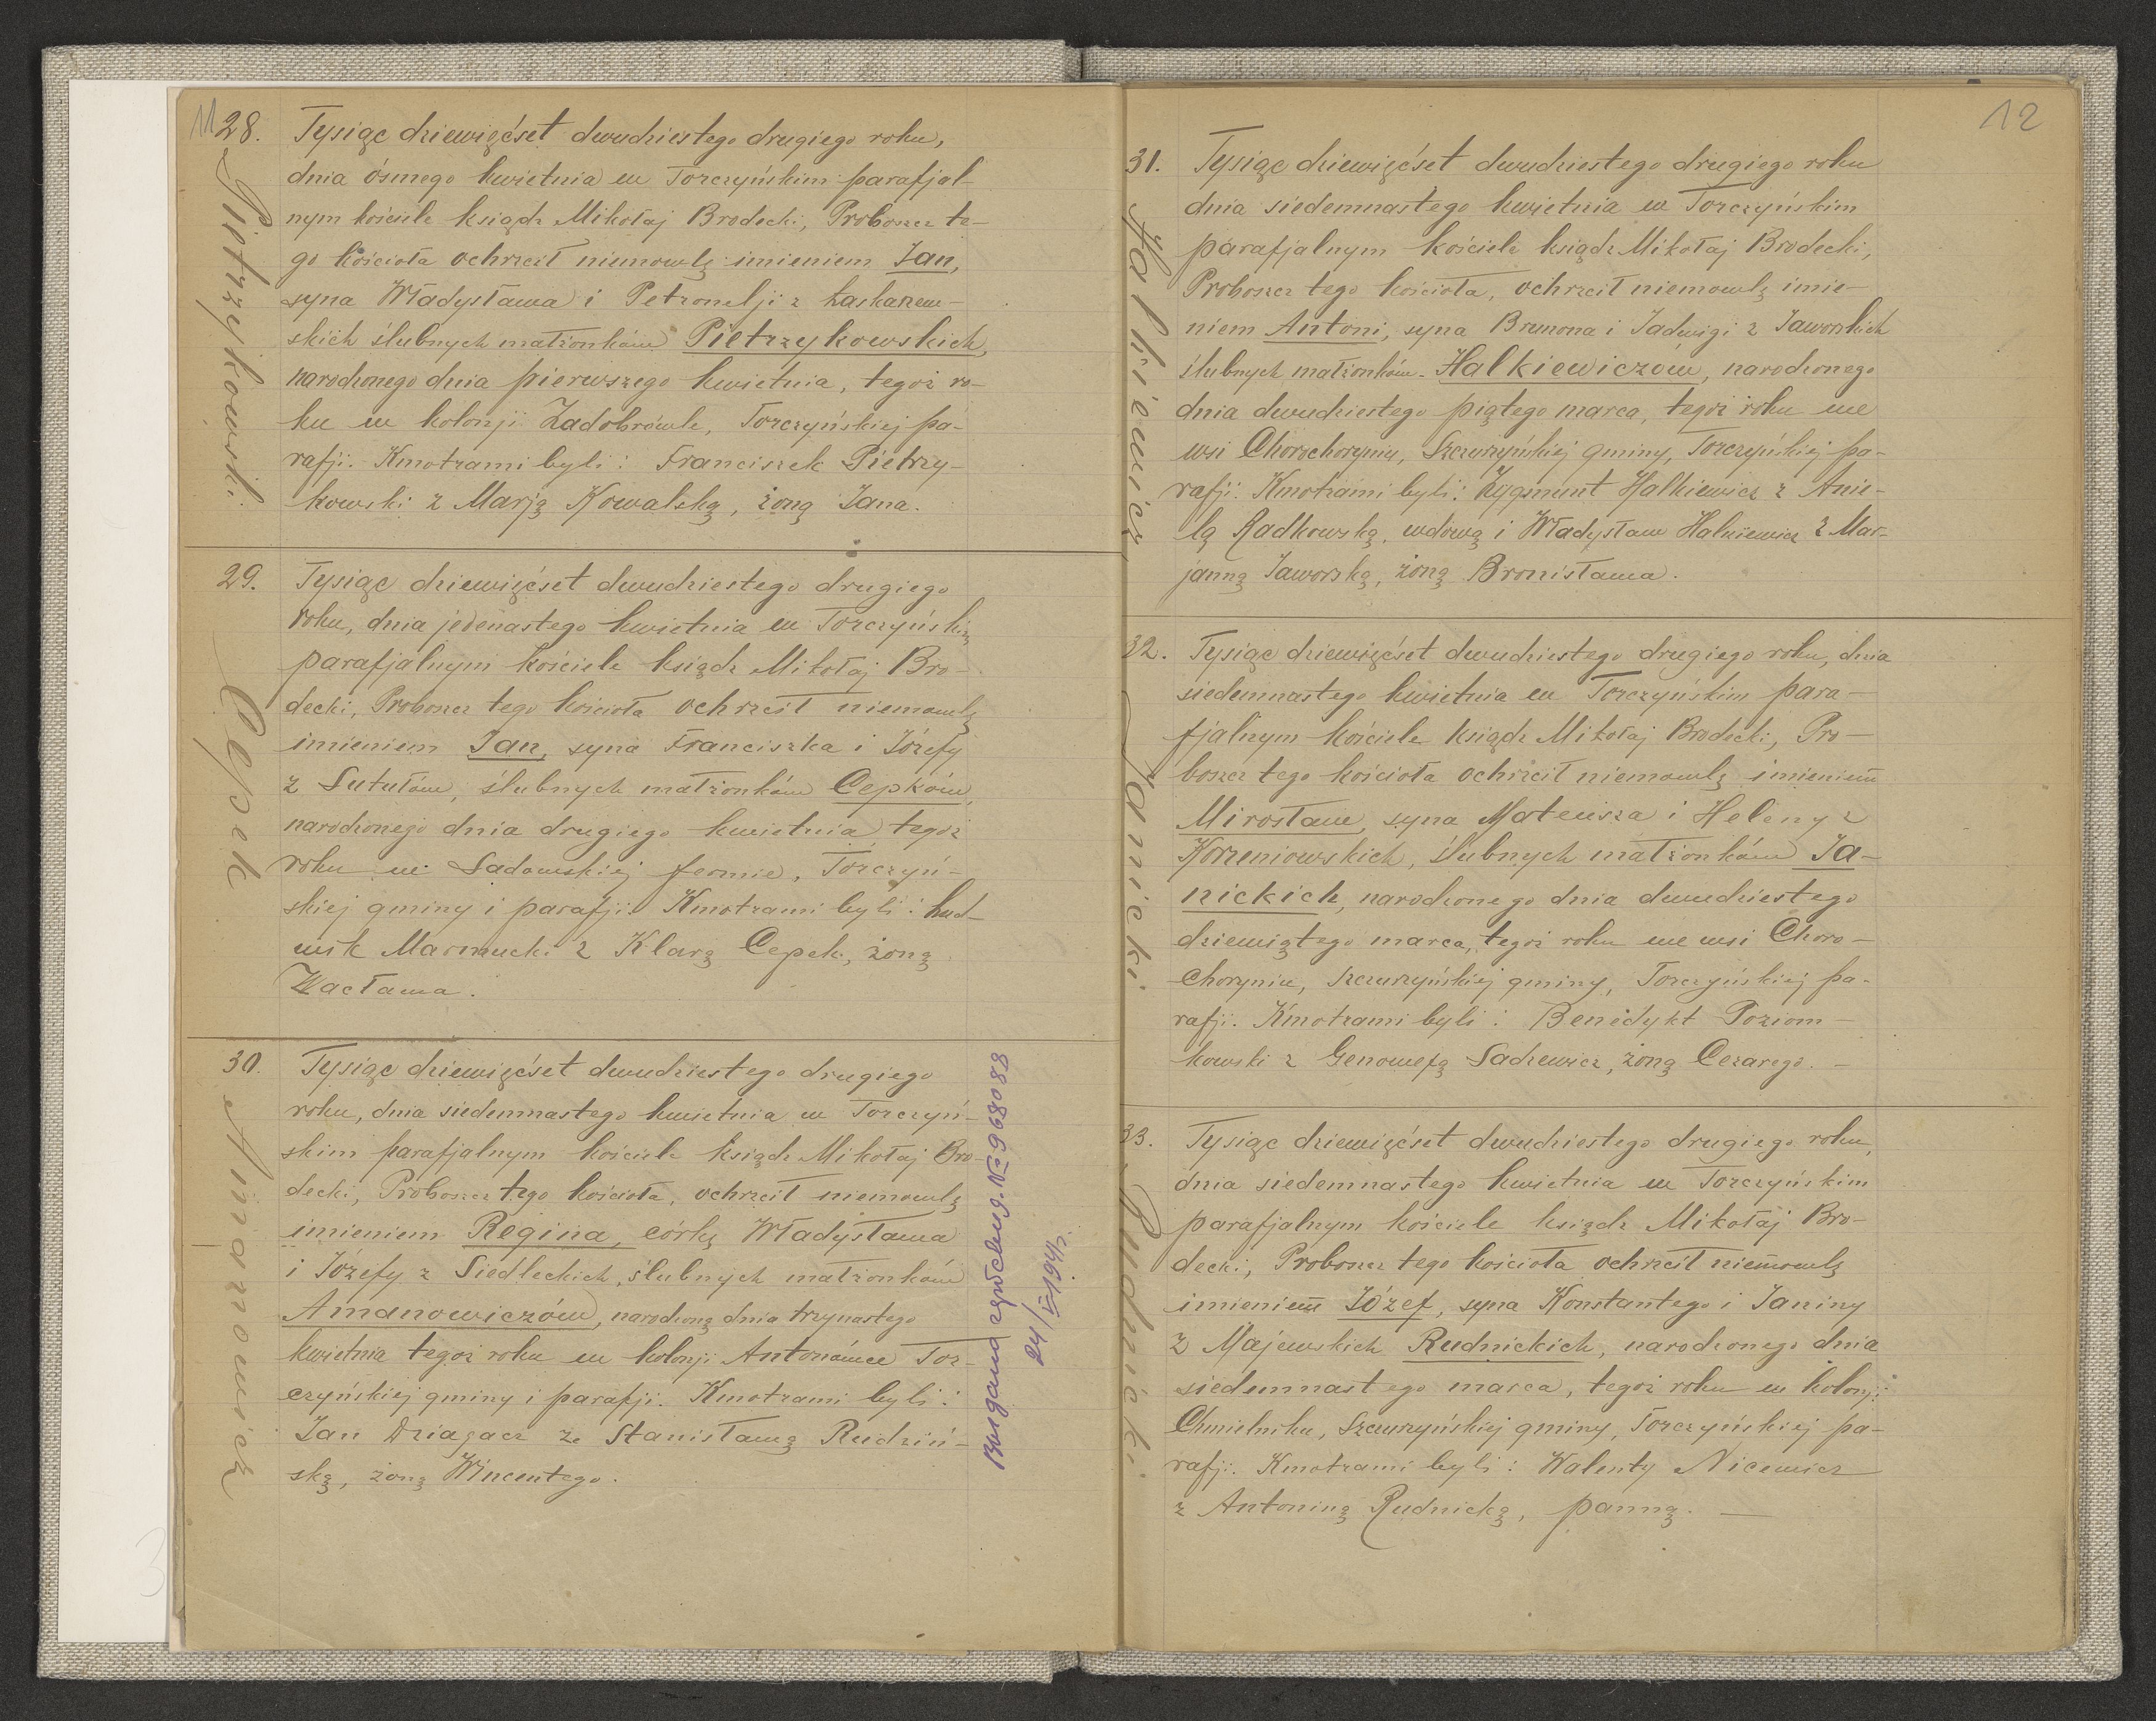 11
28.
Pietrzykowski.
Tysiąc dziewięćset dwudziestego drugiego roku,
dnia ósmego kwietnia w Torczyńskim parafjal-
nym kościele ksiądz Mikołaj Brodecki, Proboszcz te-
go kościoła ochrzcił niemowlę imieniem Jan,
syna Władysława i Petronelji z Łaskarzew-
skich ślubnych małżonków Pietrzykowskich,
narodzonego dnia pierwszego kwietnia, tegoż ro-
ku w kolonji Zadobrówle, Torczyńskiej pa-
rafji. Kmotrami byli: Franciszek Pietrzy-
kowski z Marją Kowalską, żoną Jana.
29.
Cepek
Tysiąc dziewięćset dwudziestego drugiego
roku, dnia jedenastego kwietnia w Torczyńskim
parafjalnym kościele ksiądz Mikołaj Bro-
decki, Proboszcz tego kościoła ochrzcił niemowlę
imieniem Jan, syna Franciszka i Józefy
z Sutułów, ślubnych małżonków Cepków,
narodzonego dnia drugiego kwietnia tegoż
roku w Sadowskiej fermie, Torczyń-
skiej gminy i parafji. Kmotrami byli: Lud-
wik z Klarą Cepek, żoną
Wacława.
30.
Amanowicz
Tysiąc dziewięćset dwudziestego drugiego
roku, dnia siedemnastego kwietnia w Torczyń-
skim parafjalnym kościele ksiądz Mikołaj Bro-
decki, Proboszcz tego kościoła, ochrzcił niemowlę
imieniem Regina, córkę Władysława
i Józefy z Siedleckich, ślubnych małżonków
Amanowiczów, narodzoną dnia trzynastego
kwietnia tegoż roku w kolonji Antonówce Tor-
czyńskiej gminy i parafji. Kmotrami byli:
Jan Dziagacz ze Stanisławą Rudziń-
ską, żoną Wincentego.
Выдана № 968088
24/V 1941г.
12
31.
Halkiewicz
Tysiąc dziewięćset dwudziestego drugiego roku
dnia siedemnastego kwietnia w Torczyńskim
parafjalnym kościele ksiądz Mikołaj Brodecki,
Proboszcz tego kościoła, ochrzcił niemowlę imie-
niem Antoni, syna Brunona i Jadwigi z Jaworskich
ślubnych małżonków Halkiewiczów, narodzonego
dnia dwudziestego piątego marca, tegoż roku we
wsi Chorochoryniu, Szczurzyńskiej gminy, Torczyńskiej pa-
rafji. Kmotrami byli: Zygmunt Halkiewicz z Anie-
lą Radkowską, wdową i Władysław Halkiewicz z Mar-
janną Jaworską, żoną Bronisława.
32.
Janicki.
Tysiąc dziewięćset dwudziestego drugiego roku, dnia
siedemnastego kwietnia w Torczyńskim para-
fjalnym kościele ksiądz Mikołaj Brodecki, Pro-
boszcz tego kościoła ochrzcił niemowlę imieniem
Mirosław, syna Mateusza i Heleny z
Korzeniowskich, ślubnych małżonków Ja-
nickich, narodzonego dnia dwudziestego
dziewiątego marca, tegoż roku we wsi Choro-
choryniu, Szczurzyńskiej gminy, Torczyńskiej pa-
rafji. Kmotrami byli: Benedykt Poziom-
kowski z Genowefą Sadzewicz, żoną Cezarego. —
33.
Rudnicki.
Tysiąc dziewięćset dwudziestego drugiego roku,
dnia siedemnastego kwietnia w Torczyńskim
parafjalnym kościele ksiądz Mikołaj Bro-
decki, Proboszcz tego kościoła ochrzcił niemowlę
imieniem Józef, syna Konstantego i Janiny
z Majewskich Rudnickich, narodzonego dnia
siedemnastego marca, tegoż roku w kolonji
Chmielniku, Szczurzyńskiej gminy, Torczyńskiej pa-
rafji. Kmotrami byli: Walenty Nicewicz
z Antoniną Rudnicką, panną. —